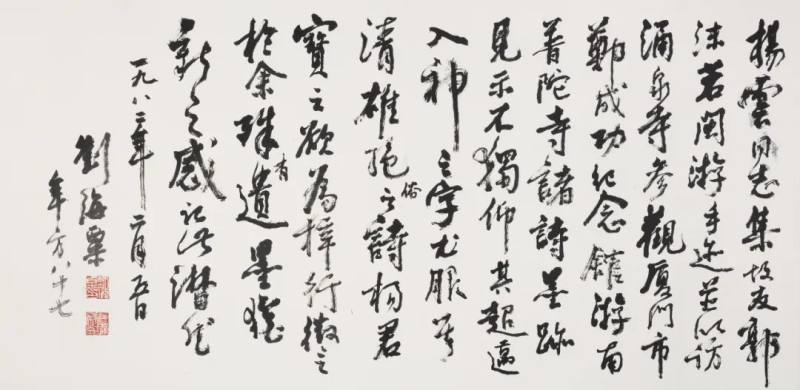 楊雲同志集故友郭
沫若閩游手迹並以訪
涌泉寺參觀厦門市
鄭成功紀念館游南
普陀寺諸詩墨跡
見示不獨仰其超邁
入神之字尤服其
清雄絕俗之詩楊君
寶之欲為梓行徵之
於余殊有遺墨猶
新之感記此潸然
一九八二年二月五日
劉海粟
年方八十七